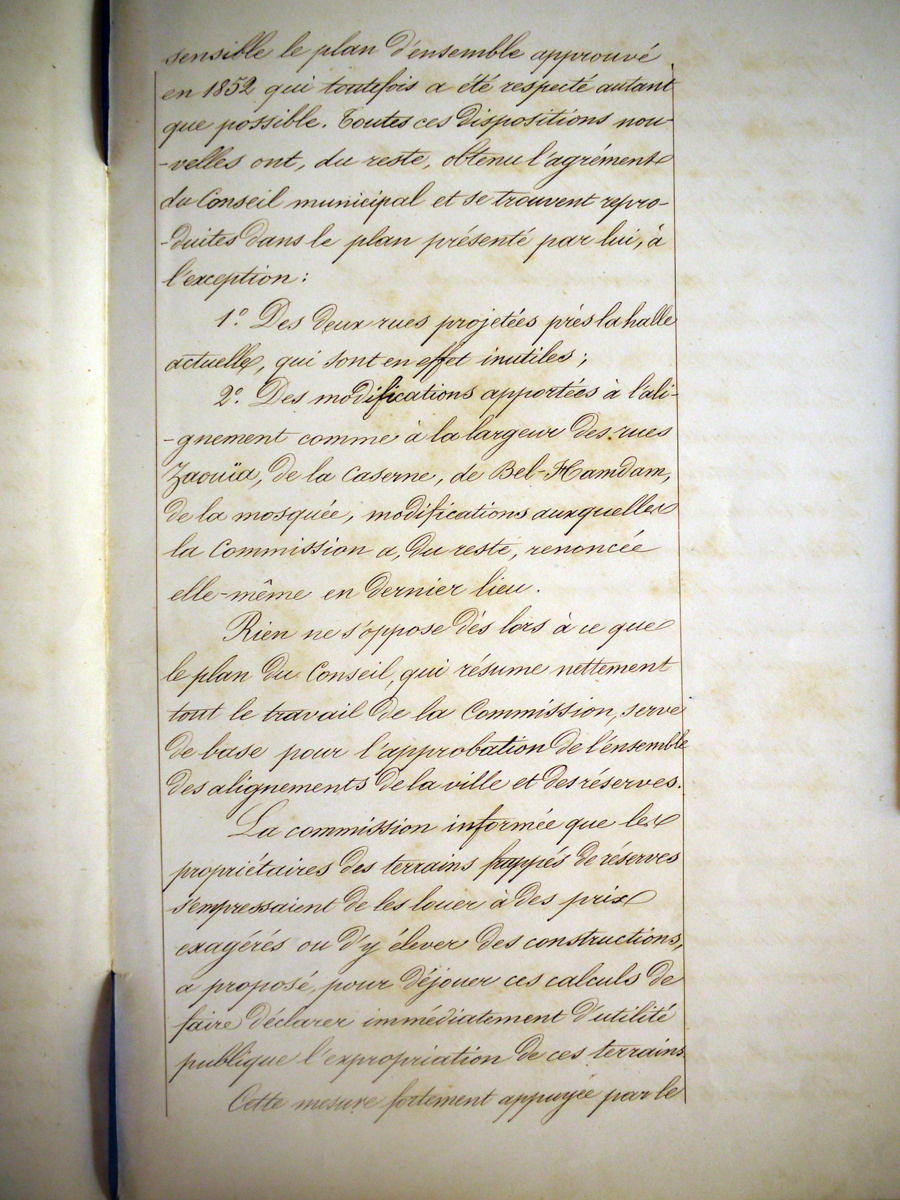 sensible le plan d'ensemble approuvé
en 1852 qui toutefois a été respecté autant
que possible. Toutes ces dispositions nou-
-velles ont, du reste, obtenu l'agrément
du Conseil municipal et se trouvent repro-
-duites dans le plan présenté par lui, à
l'exception :
1.º Des deux rues projetées près la halle
actuelle, qui sont en effet inutiles ;
2.º Des modifications apportées à l'ali-
-gnement comme à la largeur des rues
Zaouïa, de la Caserne, de Bel-Hamdam,
de la mosquée, modifications auxquelles
la Commission a, du reste, renoncée
elle-même en dernier lieu.
Rien ne s'oppose dès lors à ce que
le plan du Conseil, qui résume nettement
tout le travail de la Commission, serve
de base pour l'approbation de l'ensemble
des alignements de la ville et des réserves.
La commission informée que les
propriétaires des terrains frappés de réserves
s'empressaient de les louer à des prix
exagérés ou d'y élever des constructions,
a proposé, pour déjouer ces calculs de
faire déclarer immédiatement d'utilité
publique l'expropriation de ces terrains
Cette mesure fortement appuyée par le